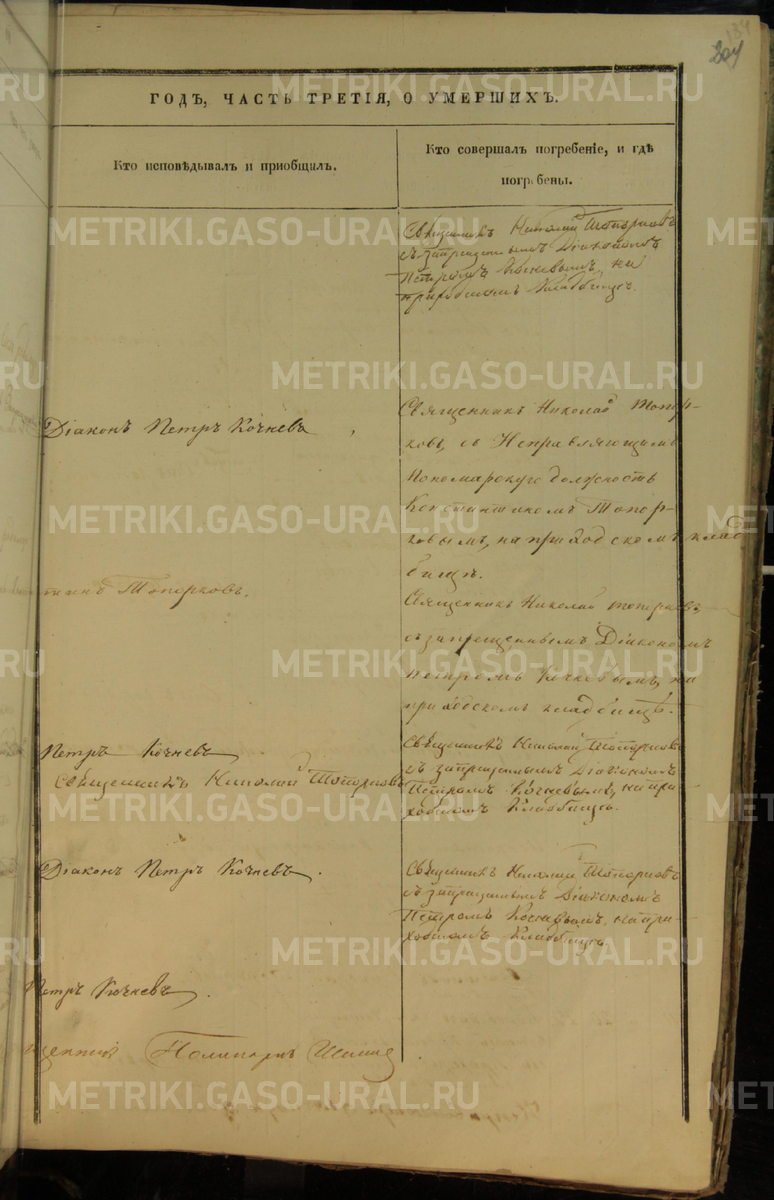 204
ГОДЪ, ЧАСТЬ ТРЕТІЯ, О УМЕРШИХЪ.
Кто исповѣдывалъ и приобщилъ.
Кто совершалъ погребеніе, и гдѣ
погребены.
Священникъ Николай Топорковъ
съ запрещеннымъ Діакономъ
Петромъ Кочневымъ, на
приходскомъ кладбищѣ.
Діаконъ Петръ Кочневъ
Священникъ Николай Топор-
ковъ, съ Исправляющимъ
Пономарскую должность
Константиномъ Топор-
ковымъ, на приходскомъ клад
бищѣ.
Топорковъ.
Священникъ Николай Топорковъ
съ запрещеннымъ Діакономъ
Петромъ Кочневымъ, на
приходскомъ кладбищѣ.
Петръ Кочневъ
Священникъ Николай Топорковъ
Священникъ Николай Топорковъ
съ запрещеннымъ Діакономъ
Петромъ Кочневымъ, на при-
ходскомъ Кладбищѣ.
Діаконъ Петръ Кочневъ.
Священникъ Николай Топорковъ
съ запрещеннымъ Діакономъ
Петромъ Кочневымъ, на при-
ходскомъ Кладбищѣ.
Петръ Кочневъ.
METRIKI.GASO-URAL.RU